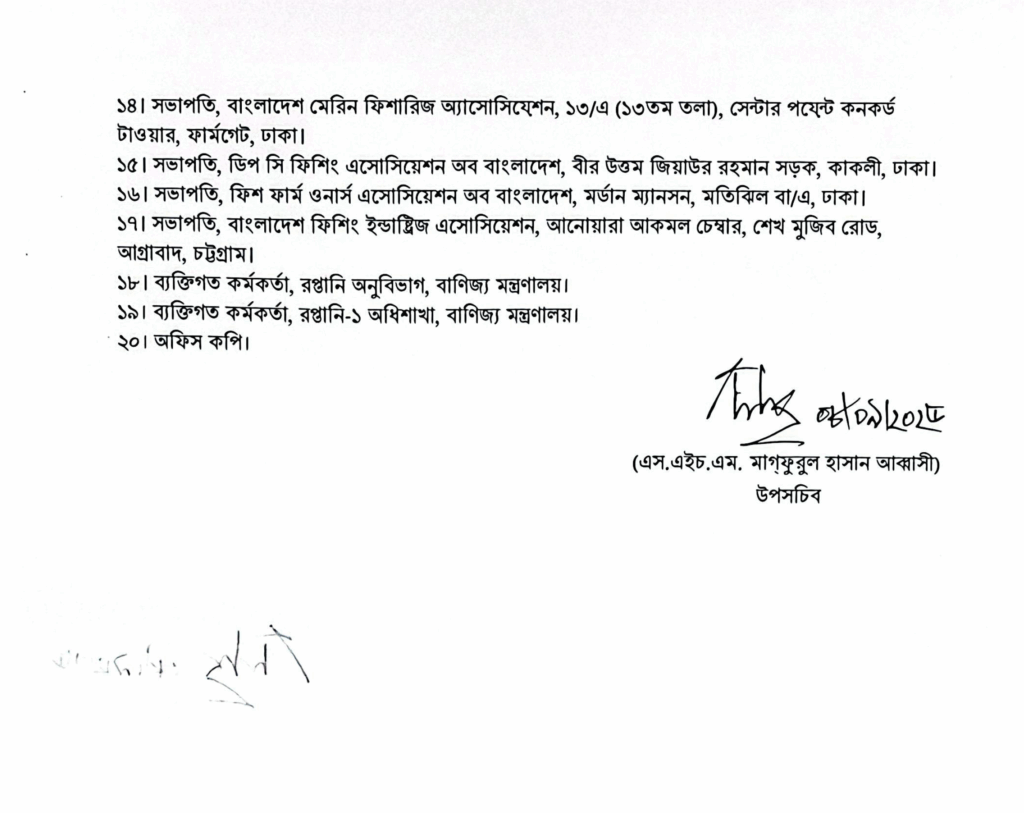 ১৪। সভাপতি, বাংলাদেশ মেরিন ফিশারিজ অ্যাসোসিয়েশন, ১৩/এ (১৩তম তলা), সেন্টার পয়েন্ট কনকর্ড
টাওয়ার, ফার্মগেট, ঢাকা।
১৫। সভাপতি, ডিপ সি ফিশিং এসোসিয়েশন অব বাংলাদেশ, বীর উত্তম জিয়াউর রহমান সড়ক, কাকলী, ঢাকা।
১৬। সভাপতি, ফিশ ফার্ম ওনার্স এসোসিয়েশন অব বাংলাদেশ, মর্ডান ম্যানসন, মতিঝিল বা/এ, ঢাকা।
১৭। সভাপতি, বাংলাদেশ ফিশিং ইন্ডাষ্ট্রিজ এসোসিয়েশন, আনোয়ারা আকমল চেম্বার, শেখ মুজিব রোড,
আগ্রাবাদ, চট্টগ্রাম।
১৮। ব্যক্তিগত কর্মকর্তা, রপ্তানি অনুবিভাগ, বাণিজ্য মন্ত্রণালয়।
১৯। ব্যক্তিগত কর্মকর্তা, রপ্তানি-১ অধিশাখা, বাণিজ্য মন্ত্রণালয়।
২০। অফিস কপি।
(এস.এইচ.এম. মাগ্ফুরুল হাসান আব্বাসী)
উপসচিব